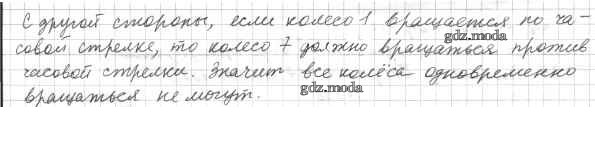 С другой стороны, если колесо 1 вращается по ча-
совой стрелке, то колесо 7 должно вращаться против
gdz.moda
часовой стрелки. Значит все колёса одновременно
gdz.moda
вращаться не могут.
gdz.moda